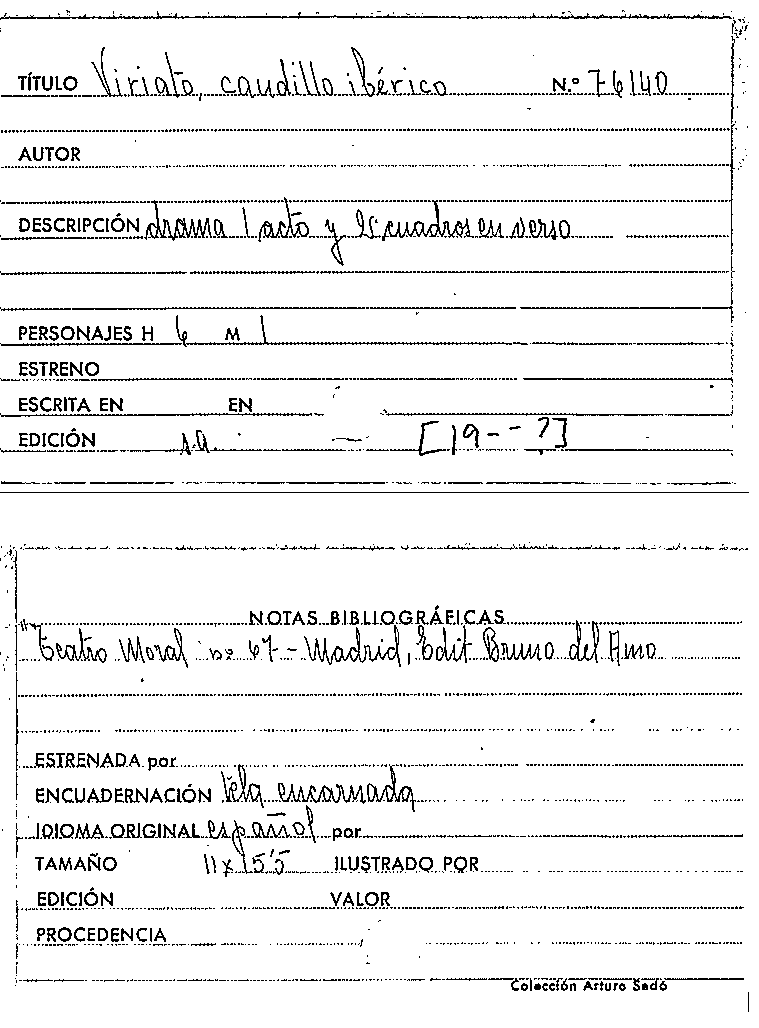 TÍTULO Viriato, caudillo ibérico N.º 76140
AUTOR
DESCRIPCIÓN drama 1 acto y cuadros en verso
PERSONAJES H 6 M 1
ESTRENO
ESCRITA EN EN
EDICIÓN s.a. — [19--?]
NOTAS BIBLIOGRÁFICAS
"Teatro Moral nº 67 - Madrid, Edit Bruno del Amo
ESTRENADA por
ENCUADERNACIÓN tela encarnada
IDIOMA ORIGINAL español por
TAMAÑO 11 x 15'5 ILUSTRADO POR
EDICIÓN VALOR
PROCEDENCIA
Colección Arturo Sedó